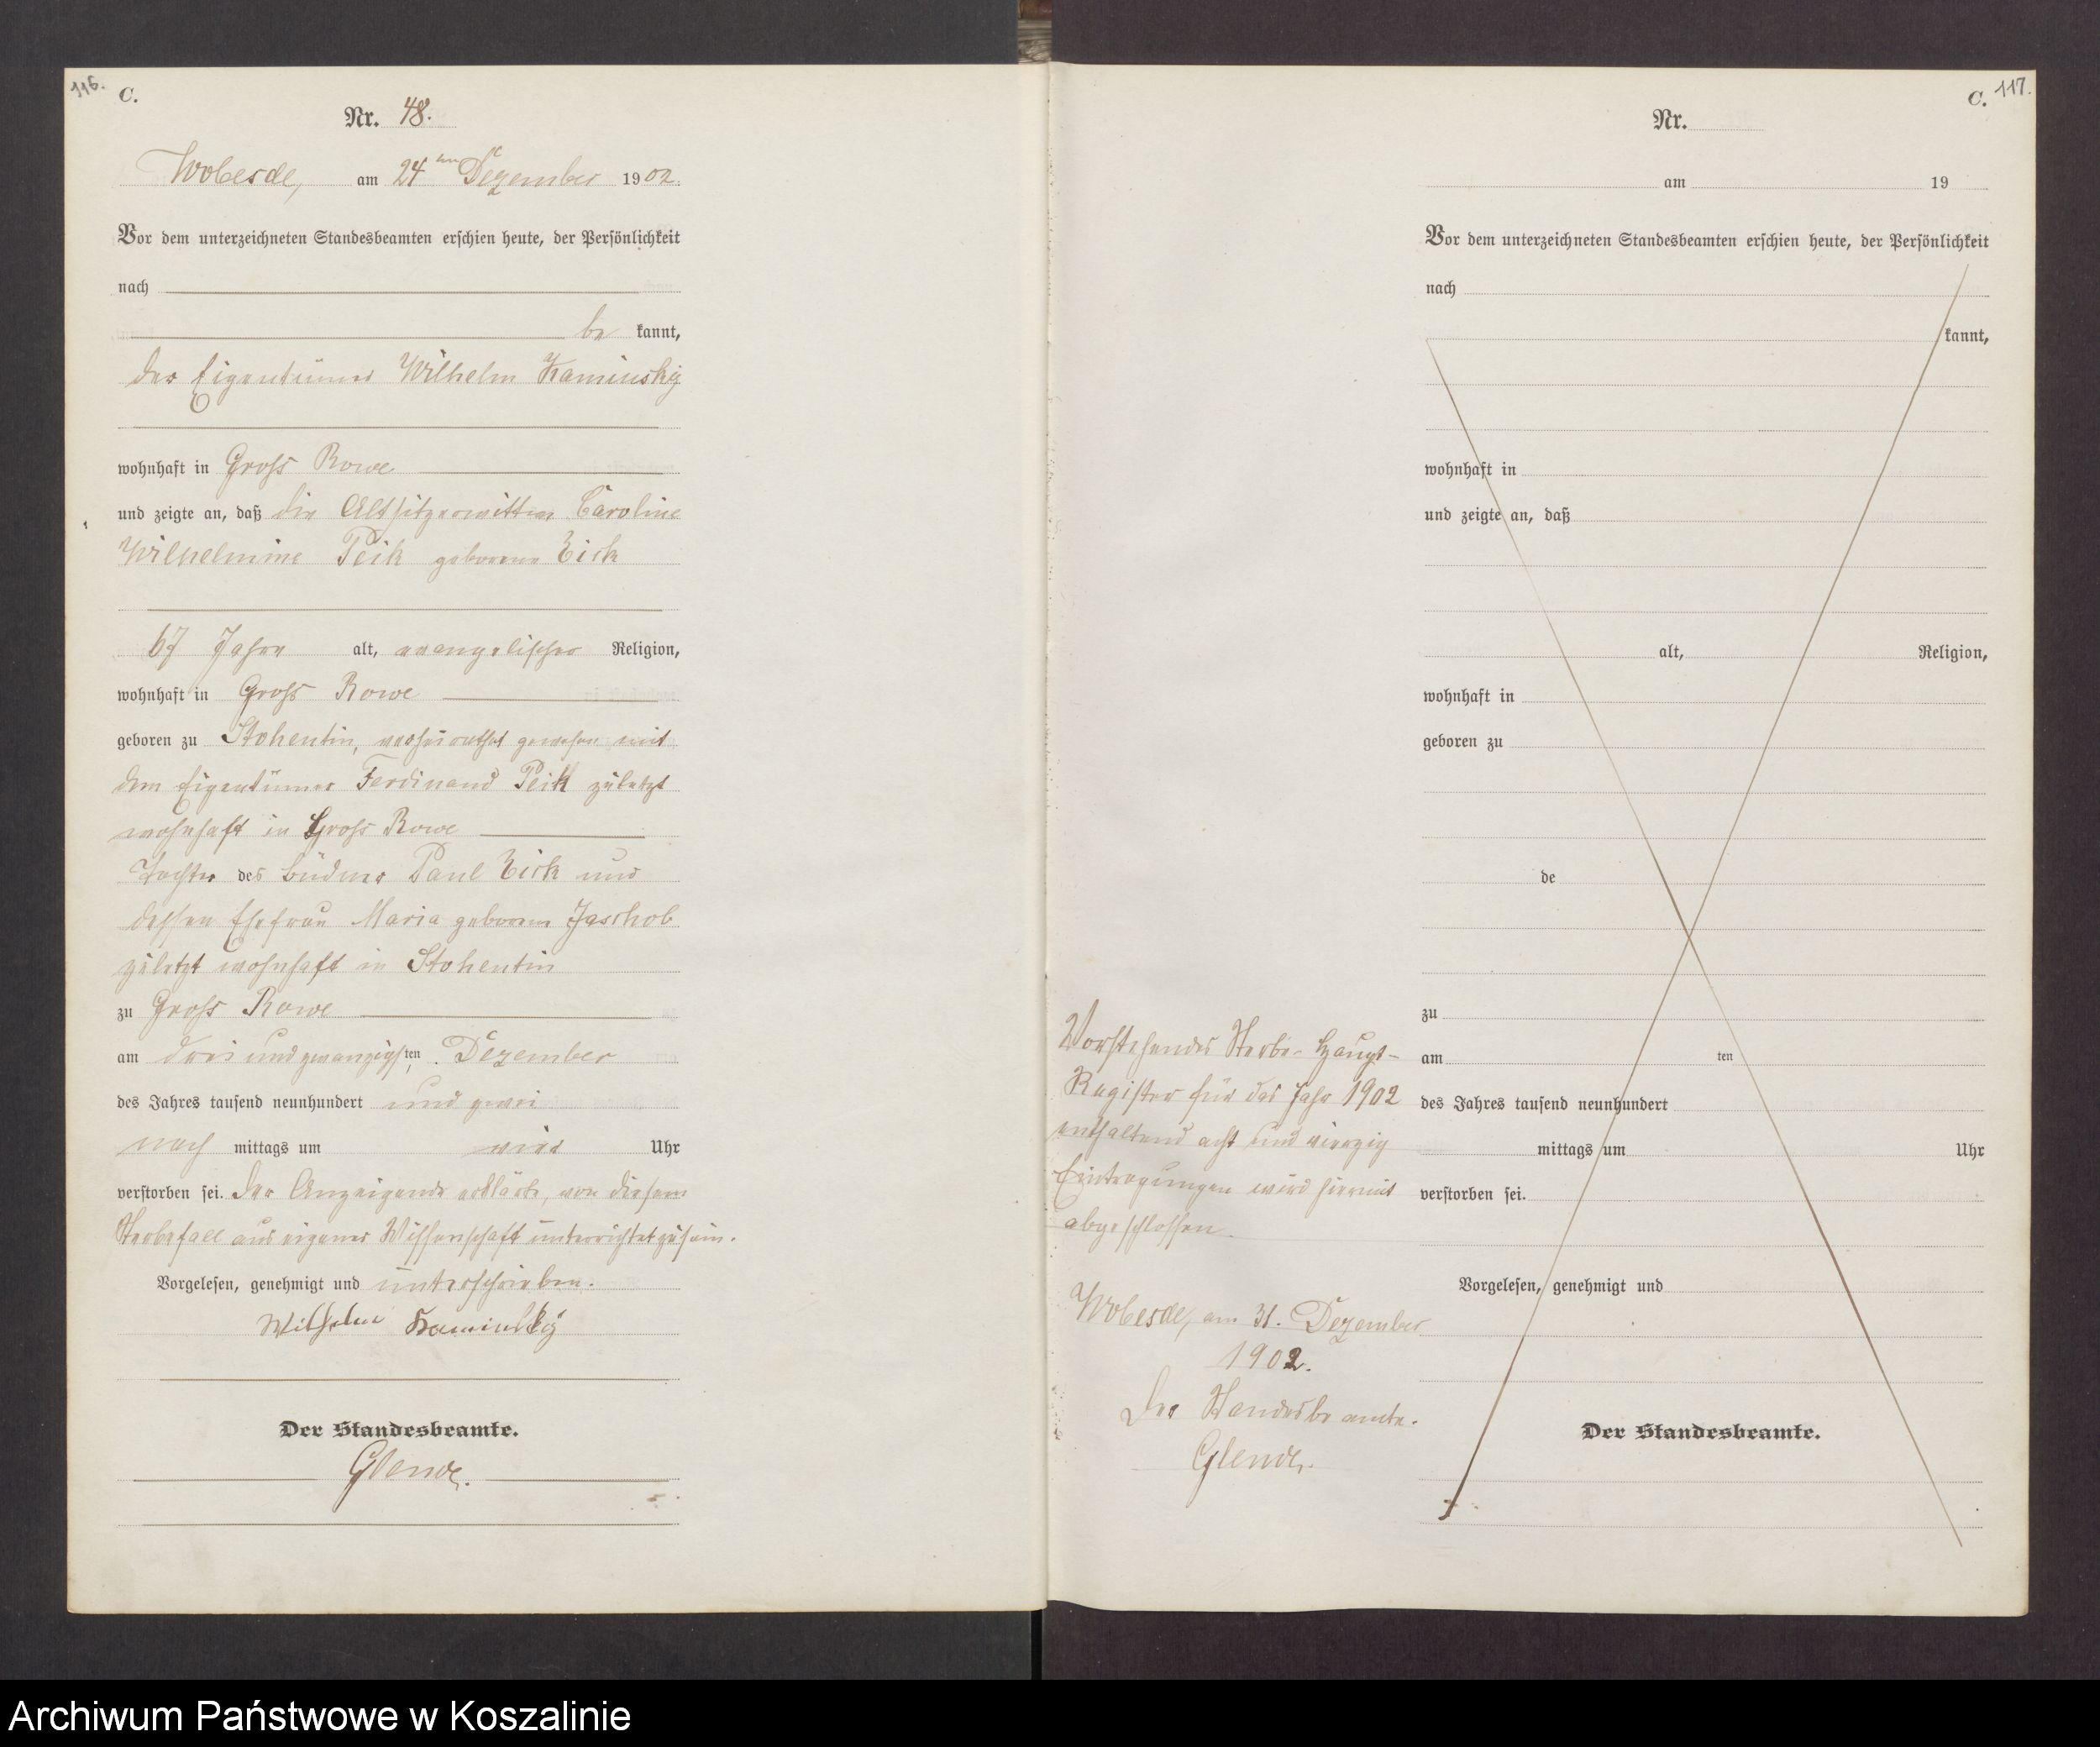 116.
C.
Nr. 48.
Wobesde, am 24ten Dezember 1902.
Vor dem unterzeichneten Standesbeamten erschien heute, der Persönlichkeit
nach
be kannt,
der Eigentümer Wilhelm Kaminsky
wohnhaft in Gross Rowe
und zeigte an, daß die Altsitzerwittwe Caroline
Wilhelmine Peik geborene Zick
67 Jahre alt, evangelischer Religion,
wohnhaft in Gross Rowe
geboren zu Stohentin, verheirathet gewesen mit
dem Eigentümer Ferdinand Peik zuletzt
wohnhaft in Gross Rowe
Tochter des Büdner Paul Zick und
dessen Ehefrau Maria geborene Jaschob
zuletzt wohnhaft in Stohentin
zu Gross Rowe
am drei und zwanzigsten Dezember
des Jahres tausend neunhundert und zwei
nach mittags um vier Uhr
verstorben sei. Der Anzeigende erklärte, von diesem
Sterbefall aus eigener Wissenschaft unterrichtet zu sein.
Vorgelesen, genehmigt und unterschrieben.
Wilhelm Kaminsky
Der Standesbeamte.
Glende.
C. 117.
Nr.
am 19
Vor dem unterzeichneten Standesbeamten erschien heute, der Persönlichkeit
nach
kannt,
wohnhaft in
und zeigte an, daß
alt, Religion,
wohnhaft in
geboren zu
de
zu
am ten
des Jahres tausend neunhundert
mittags um Uhr
verstorben sei.
Vorgelesen, genehmigt und
Der Standesbeamte.
Vorstehendes Sterbe-Haupt-
Register für das Jahr 1902
enthaltend acht und vierzig
Eintragungen wird hiermit
abgeschlossen.
Wobesde, am 31. Dezember
1902.
Der Standesbeamte.
Glende.
Archiwum Państwowe w Koszalinie